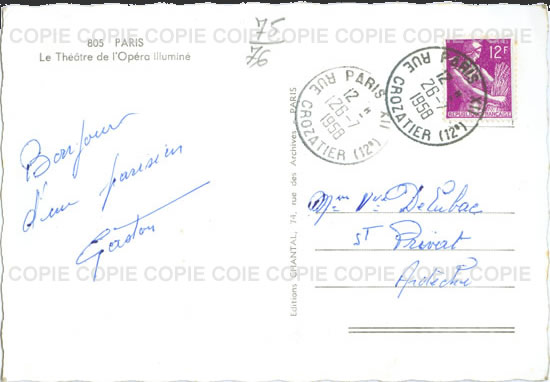 805 PARIS
Le Théâtre de l'Opéra illuminé
75
76
Bonjour
d'un parisien
Gaston
Editions CHANTAL, 74, rue des Archives PARIS
PARIS XII
12 H
26-7
1958
RUE CROZATIER (12e)
PARIS XII
12 H
26-7
1958
RUE CROZATIER (12e)
12F
REPUBLIQUE FRANÇAISE
Mme Vve Delubac
ST Privat
Ardèche
COPIE COPIE COPIE COIE COPIE COPIE COPIE
COPIE COPIE COPIE COIE COPIE COPIE COPIE
COPIE COPIE COPIE COIE COPIE COPIE COPIE